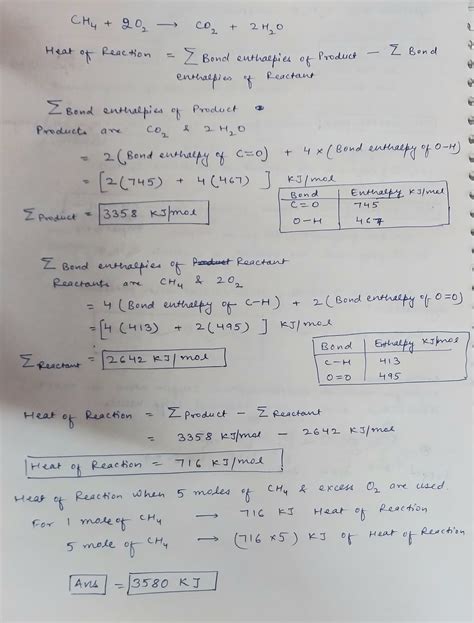 CH4 + 2O2 → CO2 + 2H2O
Heat of Reaction = Σ Bond enthalpies of Product - Σ Bond
enthalpies of Reactant
Σ Bond enthalpies of Product
Products are CO2 & 2H2O
= 2(Bond enthalpy of C=O) + 4×(Bond enthalpy of O-H)
= [2(745) + 4(467)] KJ/mol
Bond Enthalpy KJ/mol
C=O 745
O-H 467
Σ Product = 3358 KJ/mol
Σ Bond enthalpies of Product Reactant
Reactants are CH4 & 2O2
= 4(Bond enthalpy of C-H) + 2(Bond enthalpy of O=O)
= [4(413) + 2(495)] KJ/mol
Bond Enthalpy KJ/mol
C-H 413
O=O 495
Σ Reactant = 2642 KJ/mol
Heat of Reaction = Σ Product - Σ Reactant
= 3358 KJ/mol - 2642 KJ/mol
Heat of Reaction = 716 KJ/mol
Heat of Reaction when 5 moles of CH4 & excess O2 are used.
For 1 mole of CH4 → 716 KJ Heat of Reaction
5 mole of CH4 → (716×5) KJ of Heat of Reaction
Ans = 3580 KJ